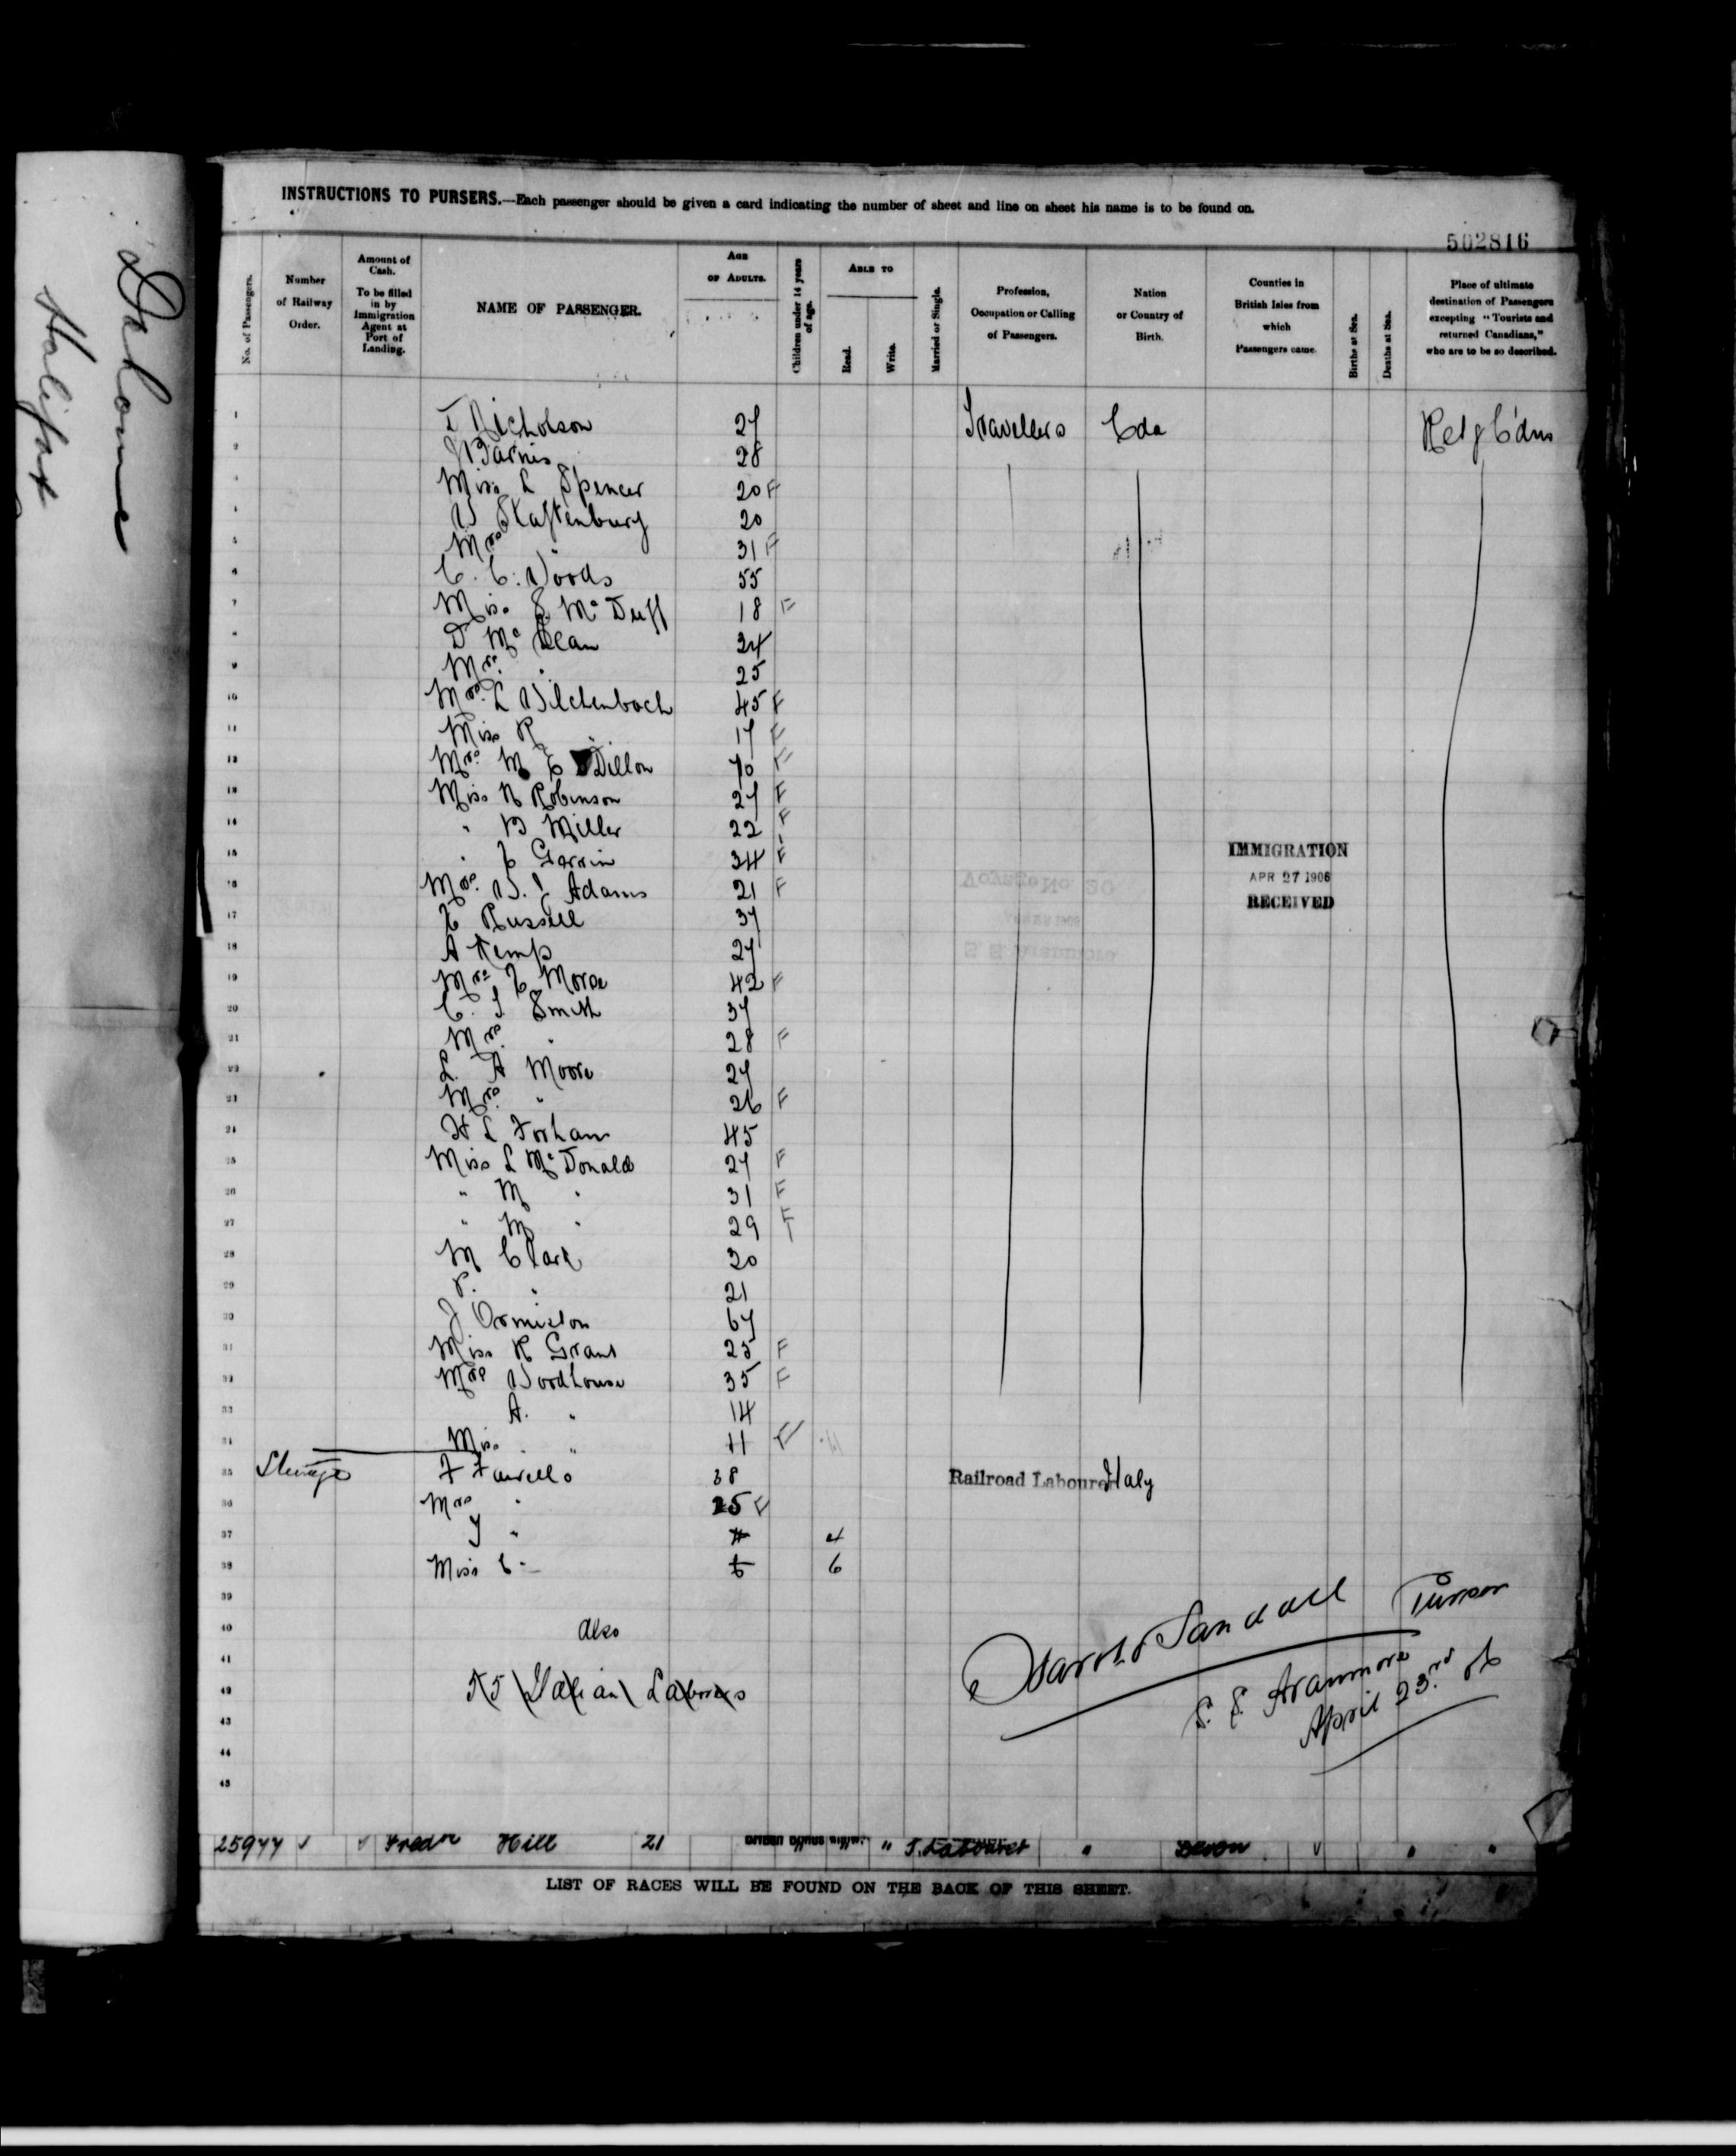 Dahome
Halifax
INSTRUCTIONS TO PURSERS.—Each passenger should be given a card indicating the number of sheet and line on sheet his name is to be found on.
502816
No. of Passengers. Number of Railway Order. Amount of Cash. To be filled in by Immigration Agent at Port of Landing. NAME OF PASSENGER. AGE OF ADULTS. Children under 14 years of age. ABLE TO Read. Write. Married or Single. Profession, Occupation or Calling of Passengers. Nation or Country of Birth. Counties in British Isles from which Passengers came. Births at Sea. Deaths at Sea. Place of ultimate destination of Passengers excepting "Tourists and returned Canadians," who are to be so described.
1 Nicholson 27 Travellers Cda Retg C'dns
2 28
3 Miss L Spencer 20 F
4 20
5 Mrs " 31 F
6 C. C. Woods 55
7 Miss S McDuff 18 F
8 D McLean 24
9 Mrs. " 25
10 Mrs. L Wilchenbach 45 F
11 Miss R " 17 F
12 Mrs. M E Dillon 70 F
13 Miss N Robinson 27 F
14 " B Miller 22 F
15 " 34 F
16 Mrs. W. J Adams 21 F
17 Russell 37
18 A Kemp 27
19 Mrs Morse 42 F
20 C. Smith 37
21 Mrs. " 28 F
22 L. A Moore 27
23 Mrs. " 26 F
24 H L 45
25 Miss L McDonald 27 F
26 " M " 31 F
27 " M " 29 F
28 M Clark 20
29 P. " 21
30 J Ormiston 67
31 Miss R Grant 25 F
32 Mrs Woodhouse 35 F
33 A. " 14
34 Miss " 11 F
35 Steerage F 38 Railroad Labourer Italy
36 Mrs " 25 F
37 " 4 4
38 Miss C - 6 6
39
40 also
41
42 55 Italian Laborers
43
44
45
IMMIGRATION
APR 27 1906
RECEIVED
Voyage No. 20
S. S. Aranmore
Harold Sandall Purser
S. S. Aranmore
April 23rd 06
25977 Fredk Hill 21 " Labourer " Devon " "
LIST OF RACES WILL BE FOUND ON THE BACK OF THIS SHEET.